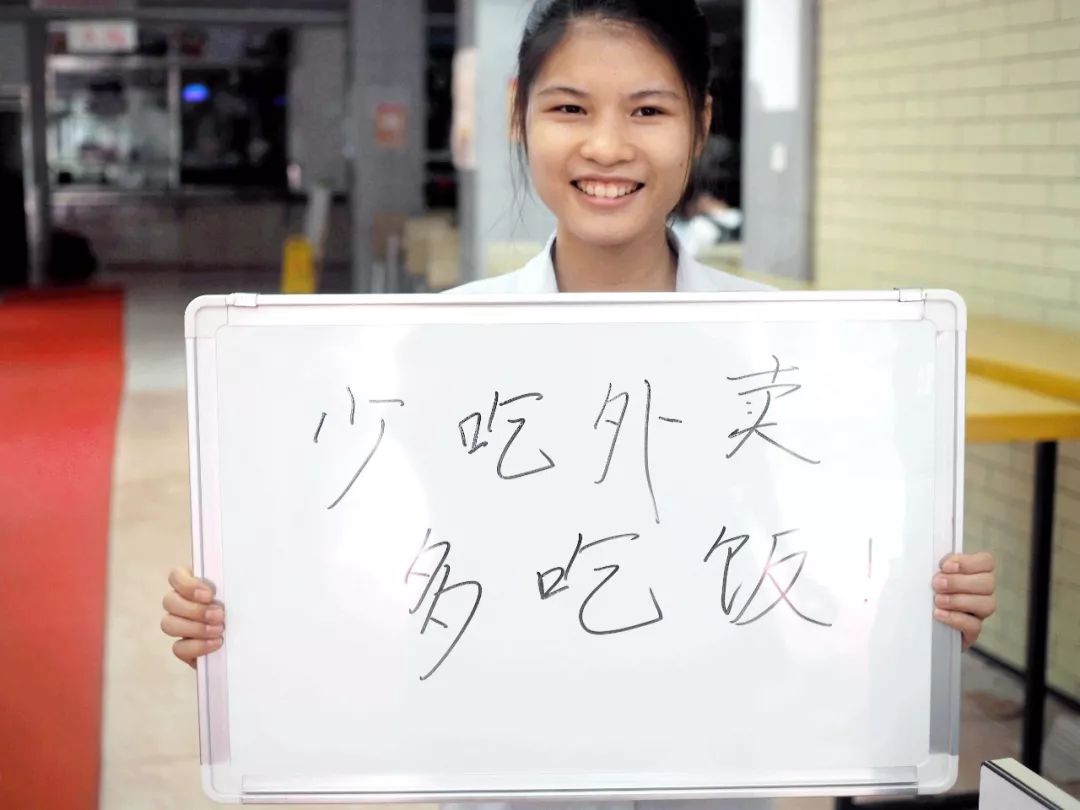 少吃外卖
多吃饭！